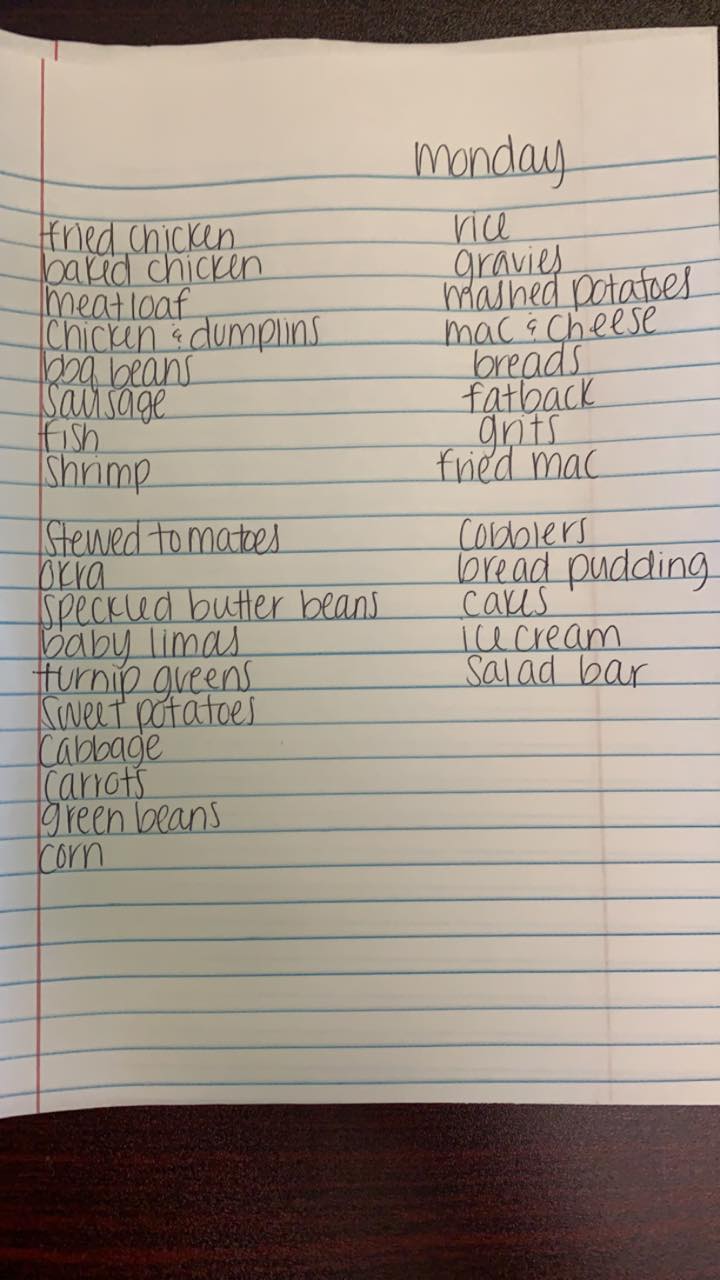 monday
fried chicken
baked chicken
meatloaf
chicken & dumplins
bbq beans
sausage
fish
shrimp
rice
gravies
mashed potatoes
mac & cheese
breads
fatback
grits
fried mac
stewed tomatoes
okra
speckled butter beans
baby limas
turnip greens
sweet potatoes
cabbage
carrots
green beans
corn
cobblers
bread pudding
cakes
ice cream
salad bar